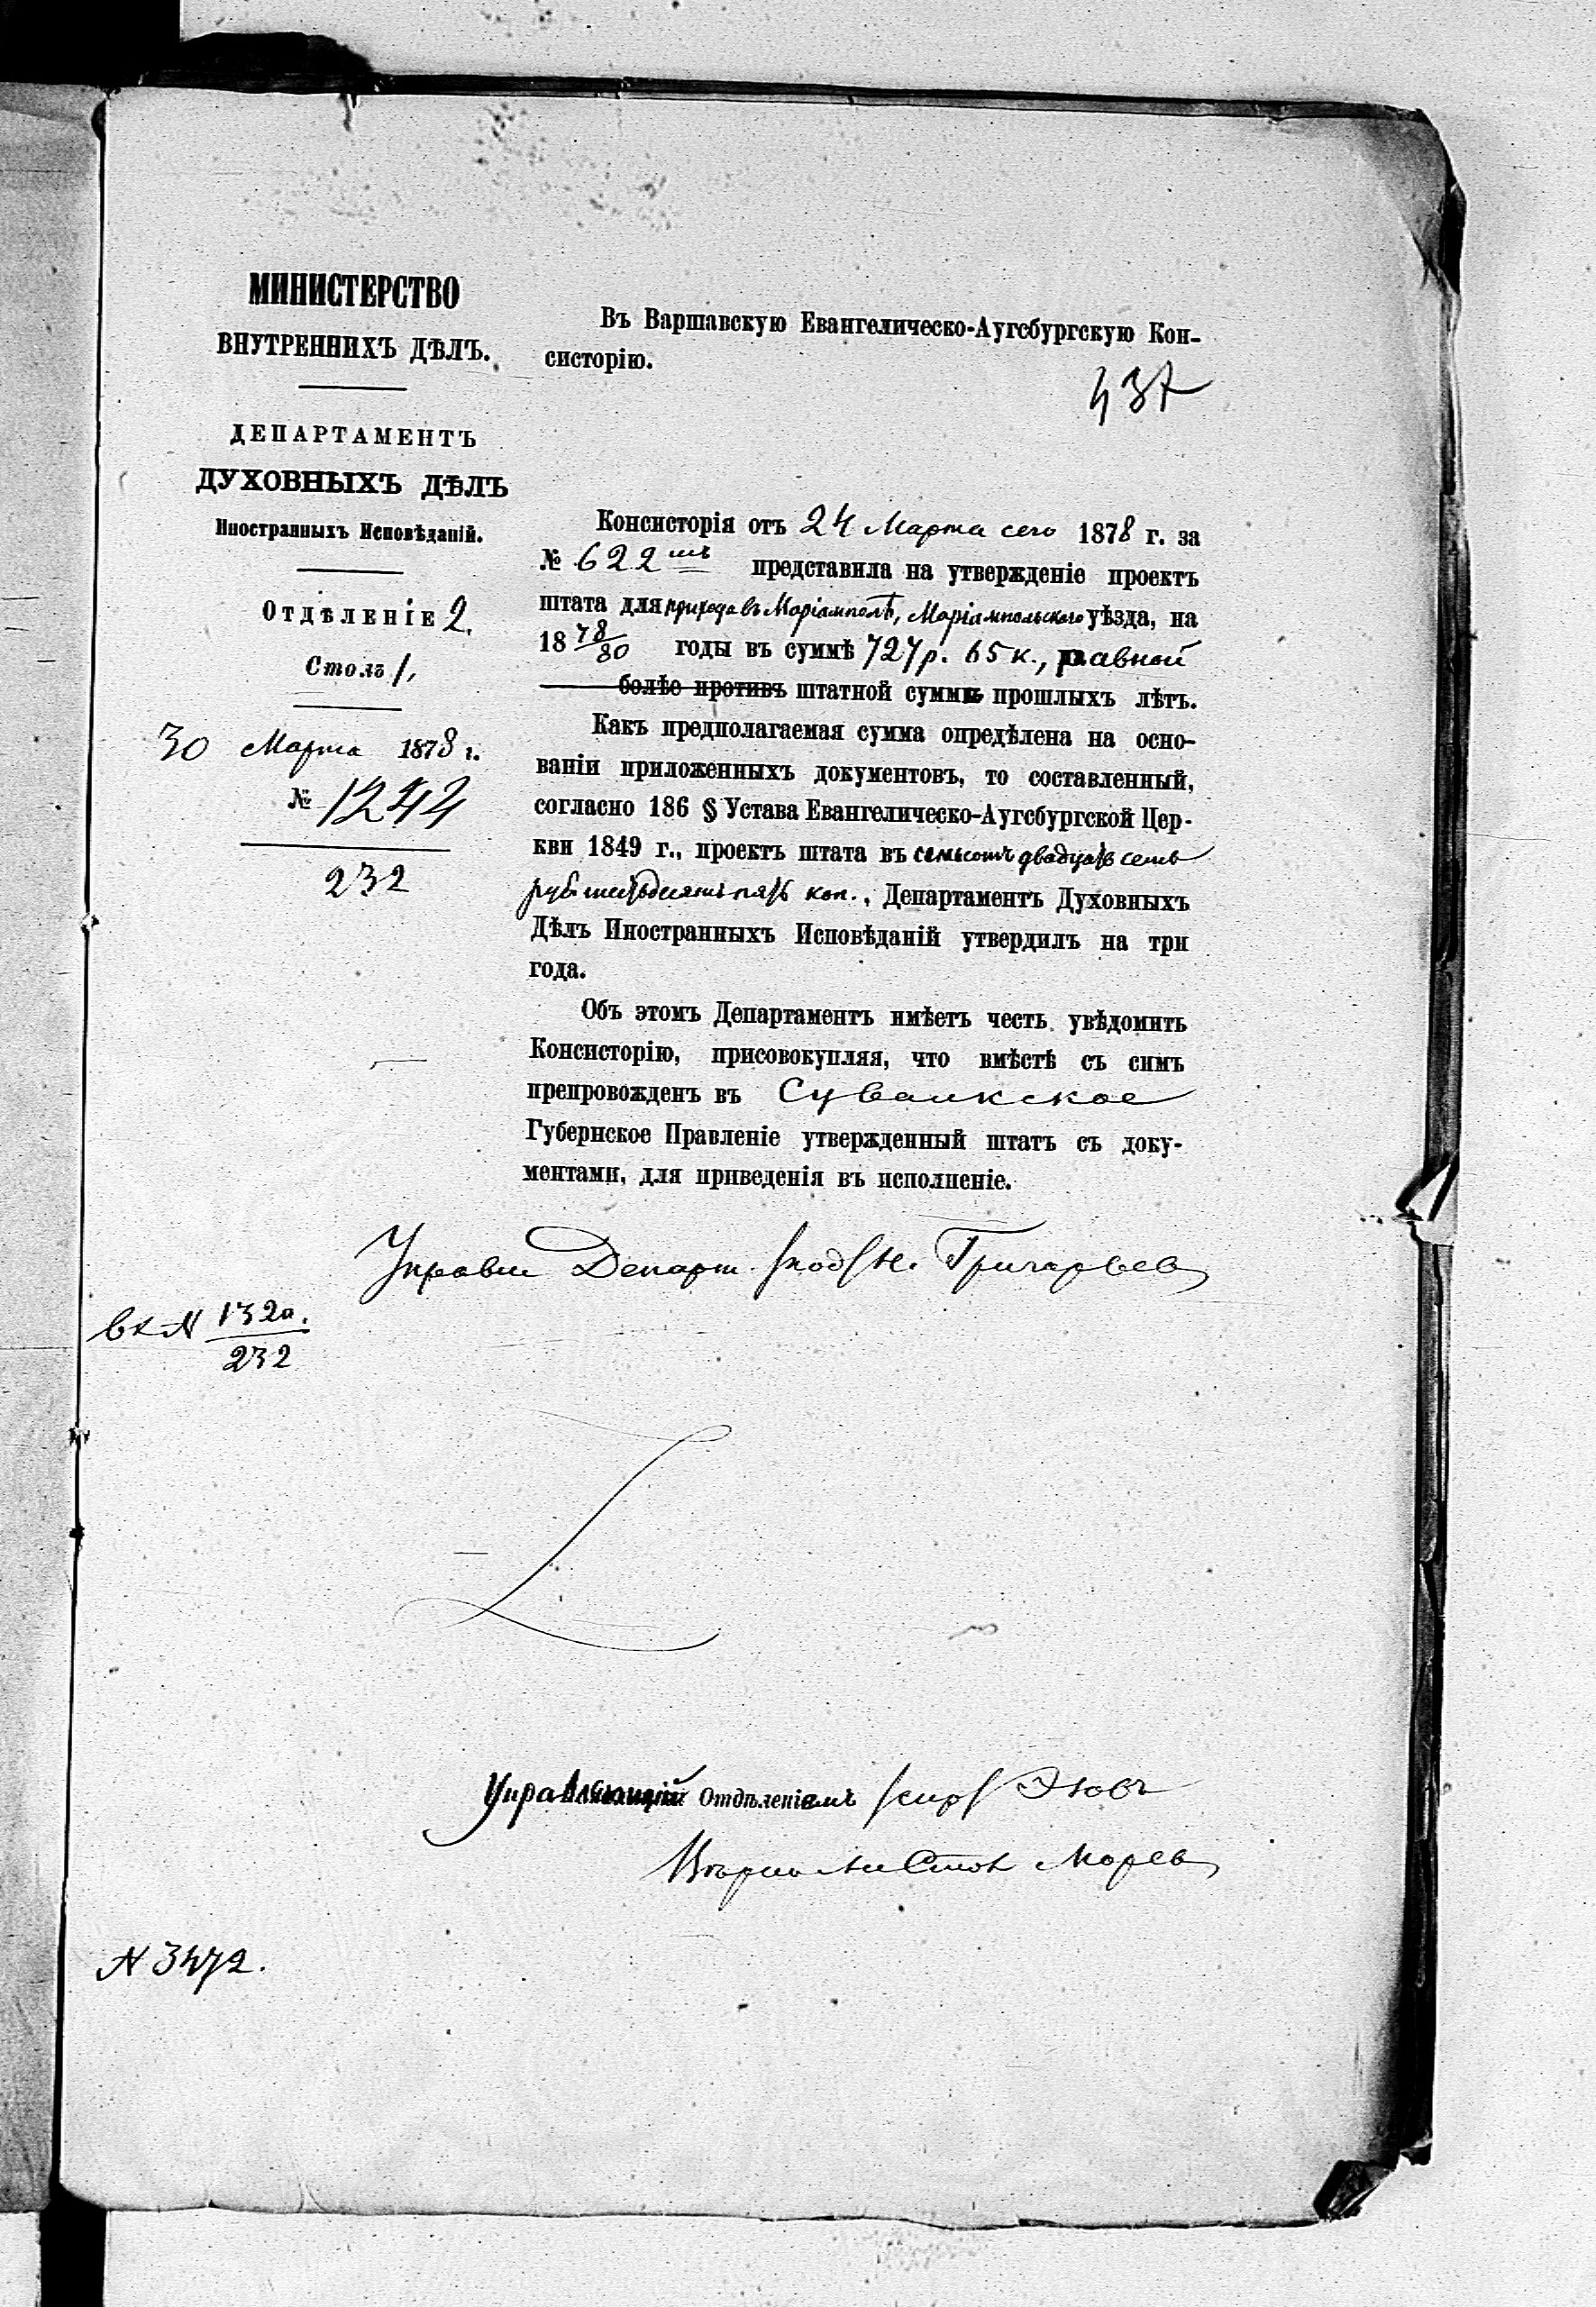 МИНИСТЕРСТВО
ВНУТРЕННИХЪ ДѢЛЪ.
ДЕПАРТАМЕНТЪ
ДУХОВНЫХЪ ДѢЛЪ
Иностранныхъ Исповѣданій.
Отдѣленіе 2.
Столъ 1,
30 Марта 1878 г.
№ 1244
232
Въ Варшавскую Евангелическо-Аугсбургскую Кон-
систорію.
437
Консисторія отъ 24 Марта сего 1878 г. за
№ 622 представила на утвержденіе проектъ
штата для прихода въ Маріамполѣ, Маріампольскаго уѣзда, на
18 78/80 годы въ суммѣ 727 р. 65 к., равной
болѣе противъ штатной суммѣ прошлыхъ лѣтъ.
Какъ предполагаемая сумма опредѣлена на осно-
ваніи приложенныхъ документовъ, то составленный,
согласно 186 § Устава Евангелическо-Аугсбургской Цер-
кви 1849 г., проектъ штата въ семьсотъ двадцать семь
руб. шестьдесятъ пять коп., Департаментъ Духовныхъ
Дѣлъ Иностранныхъ Исповѣданій утвердилъ на три
года.
Объ этомъ Департаментъ имѣетъ честь увѣдомить
Консисторію, присовокупляя, что вмѣстѣ съ симъ
препровожденъ въ Сувалкское
Губернское Правленіе утвержденный штатъ съ доку-
ментами, для приведенія въ исполненіе.
Управл Департ. /под/ Григорьев
вх № 1320.
232
Управляющій Отдѣленіемъ /скр/ Эзовъ
Вѣрно Стол Морев
№ 3472.